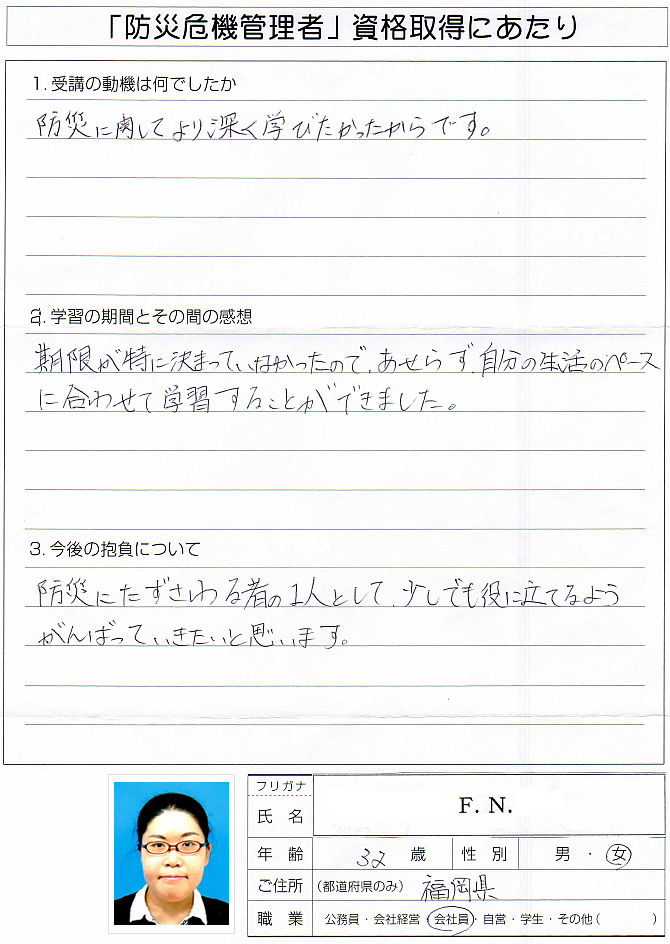 「防災危機管理者」資格取得にあたり
1. 受講の動機は何でしたか
防災に関してより深く学びたかったからです。
2. 学習の期間とその間の感想
期限が特に決まっていなかったので、あせらず、自分の生活のペース
に合わせて学習することができました。
3. 今後の抱負について
防災にたずさわる者の1人として、少しでも役に立てるよう
がんばっていきたいと思います。
フリガナ
氏 名 F. N.
年 齢 32 歳 性 別 男 ・ 女
ご住所 (都道府県のみ) 福岡県
職 業 公務員・会社経営・会社員・自営・学生・その他( )